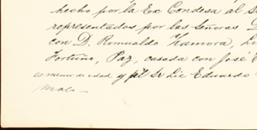 hecho por la Ex Condesa al s
representados por las Señoras D
con D. Romualdo Zamora, Lu
Fortuño, Paz, casada con José
menor de edad y pr. Sr Lic Eduardo
Malo.-